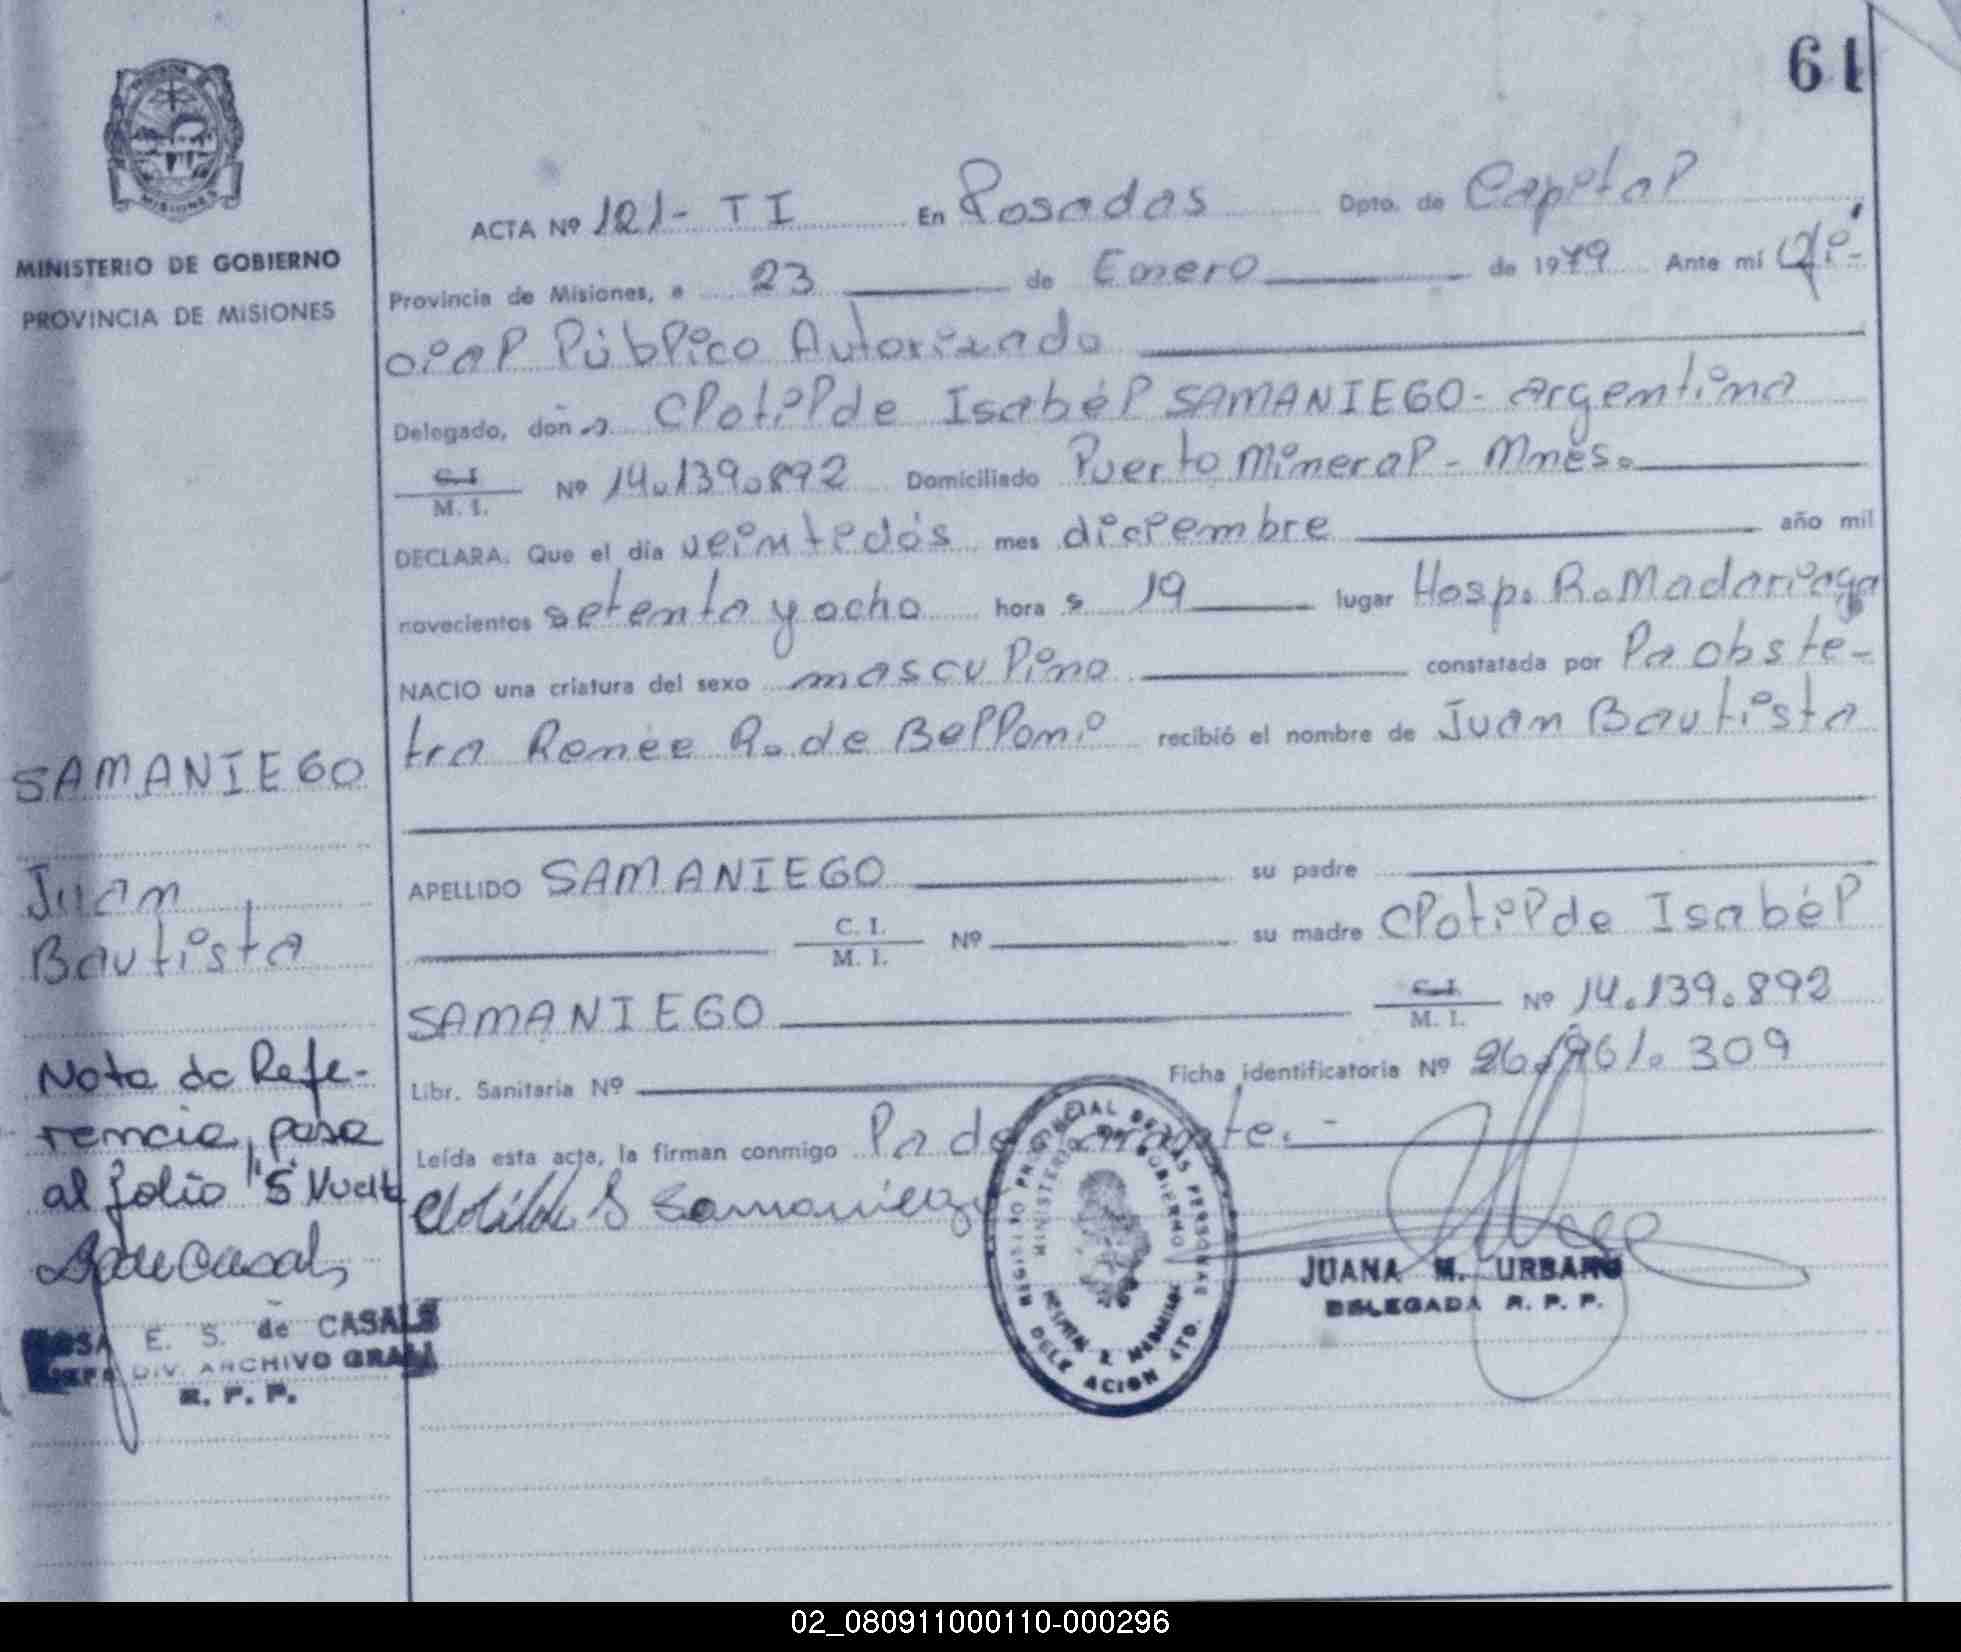 61
PROVINCIA DE MISIONES
MINISTERIO DE GOBIERNO
PROVINCIA DE MISIONES
ACTA Nº 121- TI En Posadas Dpto. de Capital
Provincia de Misiones, a 23 de Enero de 1979 Ante mí Ofi-
cial Público Autorizado
Delegado, doña Clotilde Isabél SAMANIEGO- argentina
C.I. M. I. Nº 14.139.892 Domiciliado Puerto Mineral - Mnes.
DECLARA. Que el día veintedós mes diciembre año mil
novecientos setenta y ocho hora s 19 lugar Hosp. R. Madariaga
NACIO una criatura del sexo masculino constatada por la obste-
tra Renée R. de Belloni recibió el nombre de Juan Bautista
APELLIDO SAMANIEGO su padre
C. I. M. I. Nº su madre Clotilde Isabél
SAMANIEGO C.I. M. I. Nº 14.139.892
Libr. Sanitaria Nº Ficha identificatoria Nº 309
Leída esta acta, la firman conmigo la
Clotilde Samaniego
JUANA M. URBANO
DELEGADA R. P. P.
REGISTRO PROVINCIAL DE LAS PERSONAS
MINISTERIO DE GOBIERNO
DELEGACION
SAMANIEGO
Juan
Bautista
Nota de Refe-
rencia, pasa
al folio "5" Vuelta
de Casals
ROSA E. S. de CASALS
JEFA DIV. ARCHIVO GRAL
R. P. P.
02_080911000110-000296